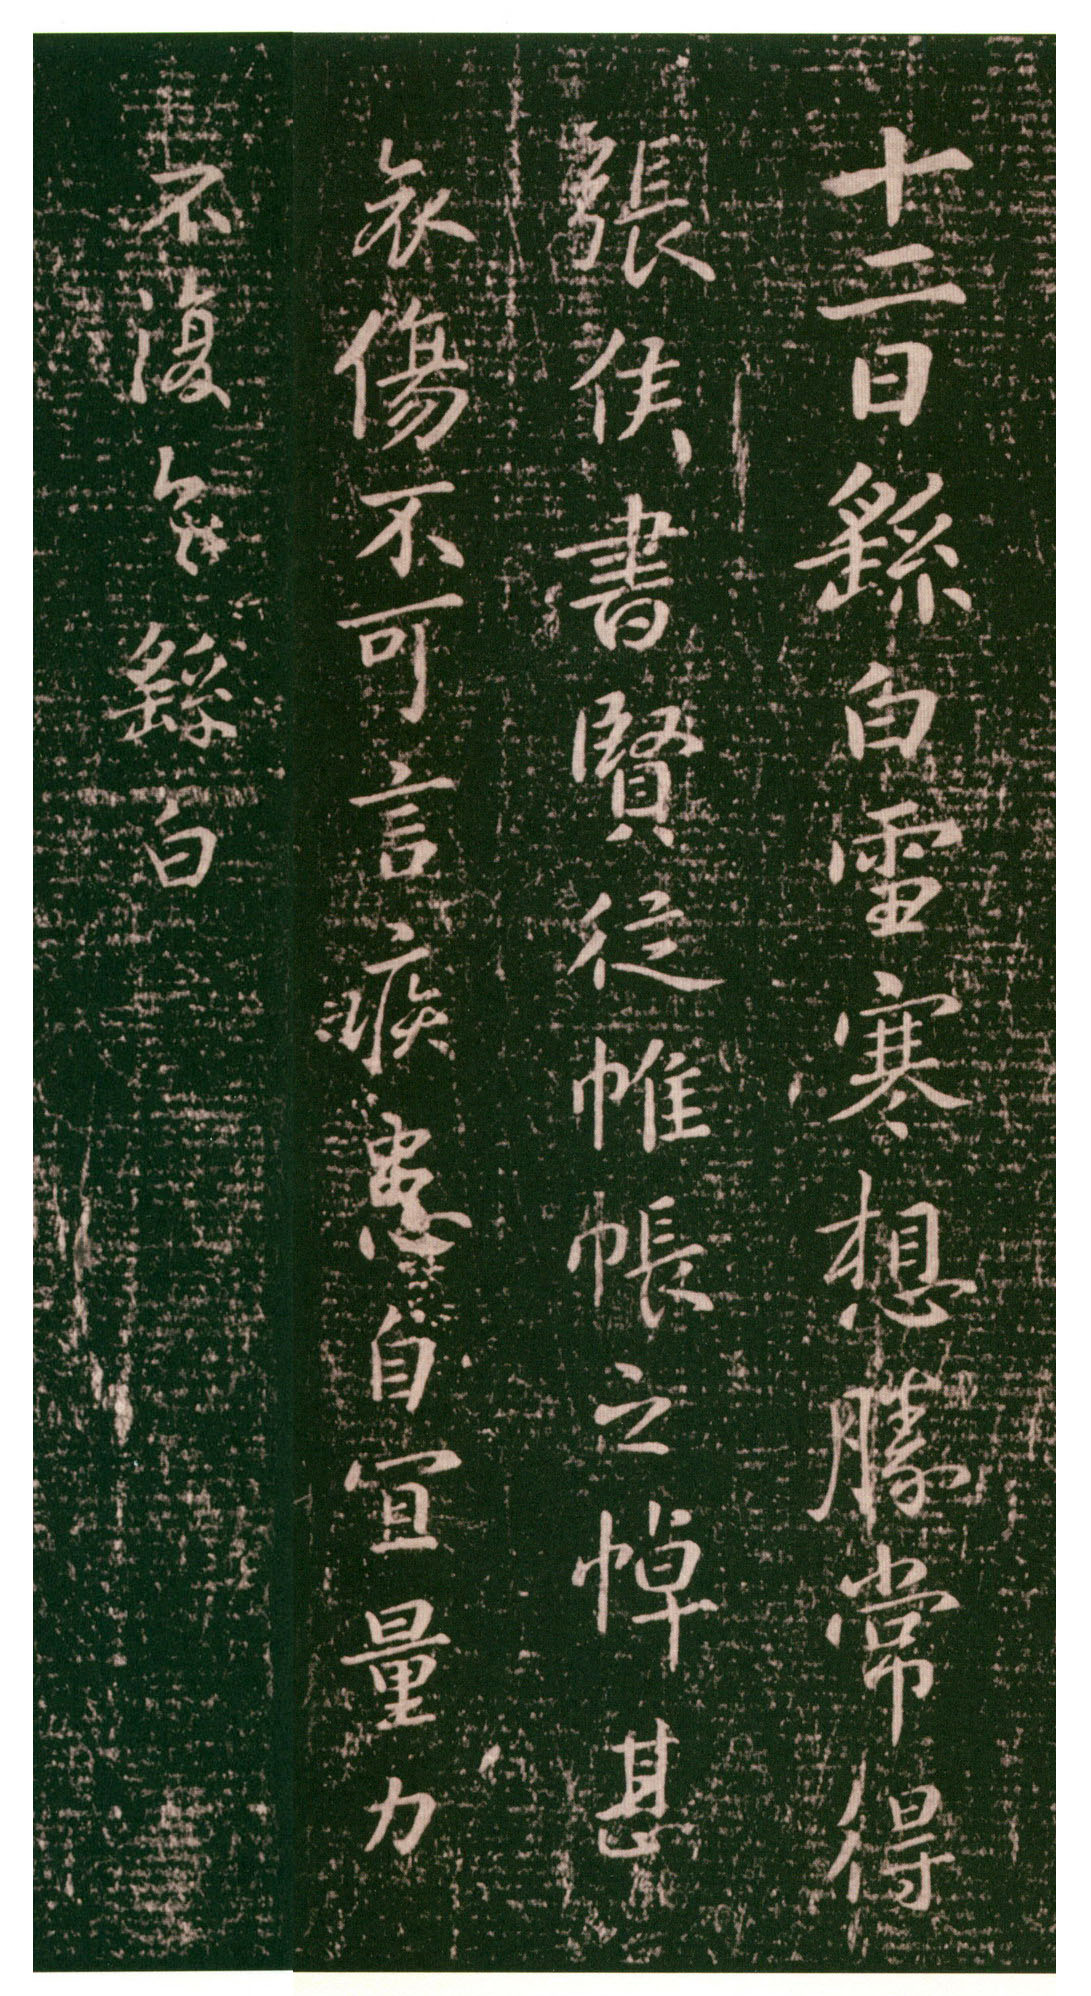 十二日繇白雪寒想勝常得
張侯書賢從帷帳之悼甚
哀傷不可言疾患自宜量力
不復繇白